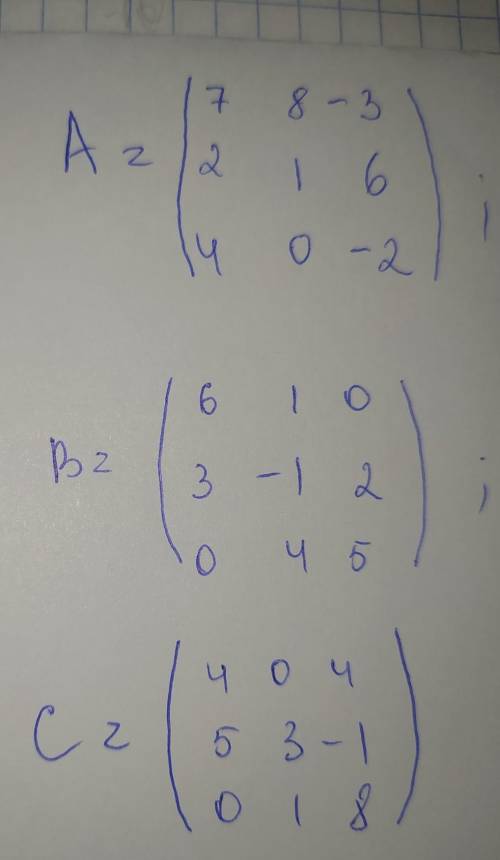 7 8 -3
A = 2 1 6 ;
4 0 -2
6 1 0
B = 3 -1 2 ;
0 4 5
4 0 4
C = 5 3 -1
0 1 8